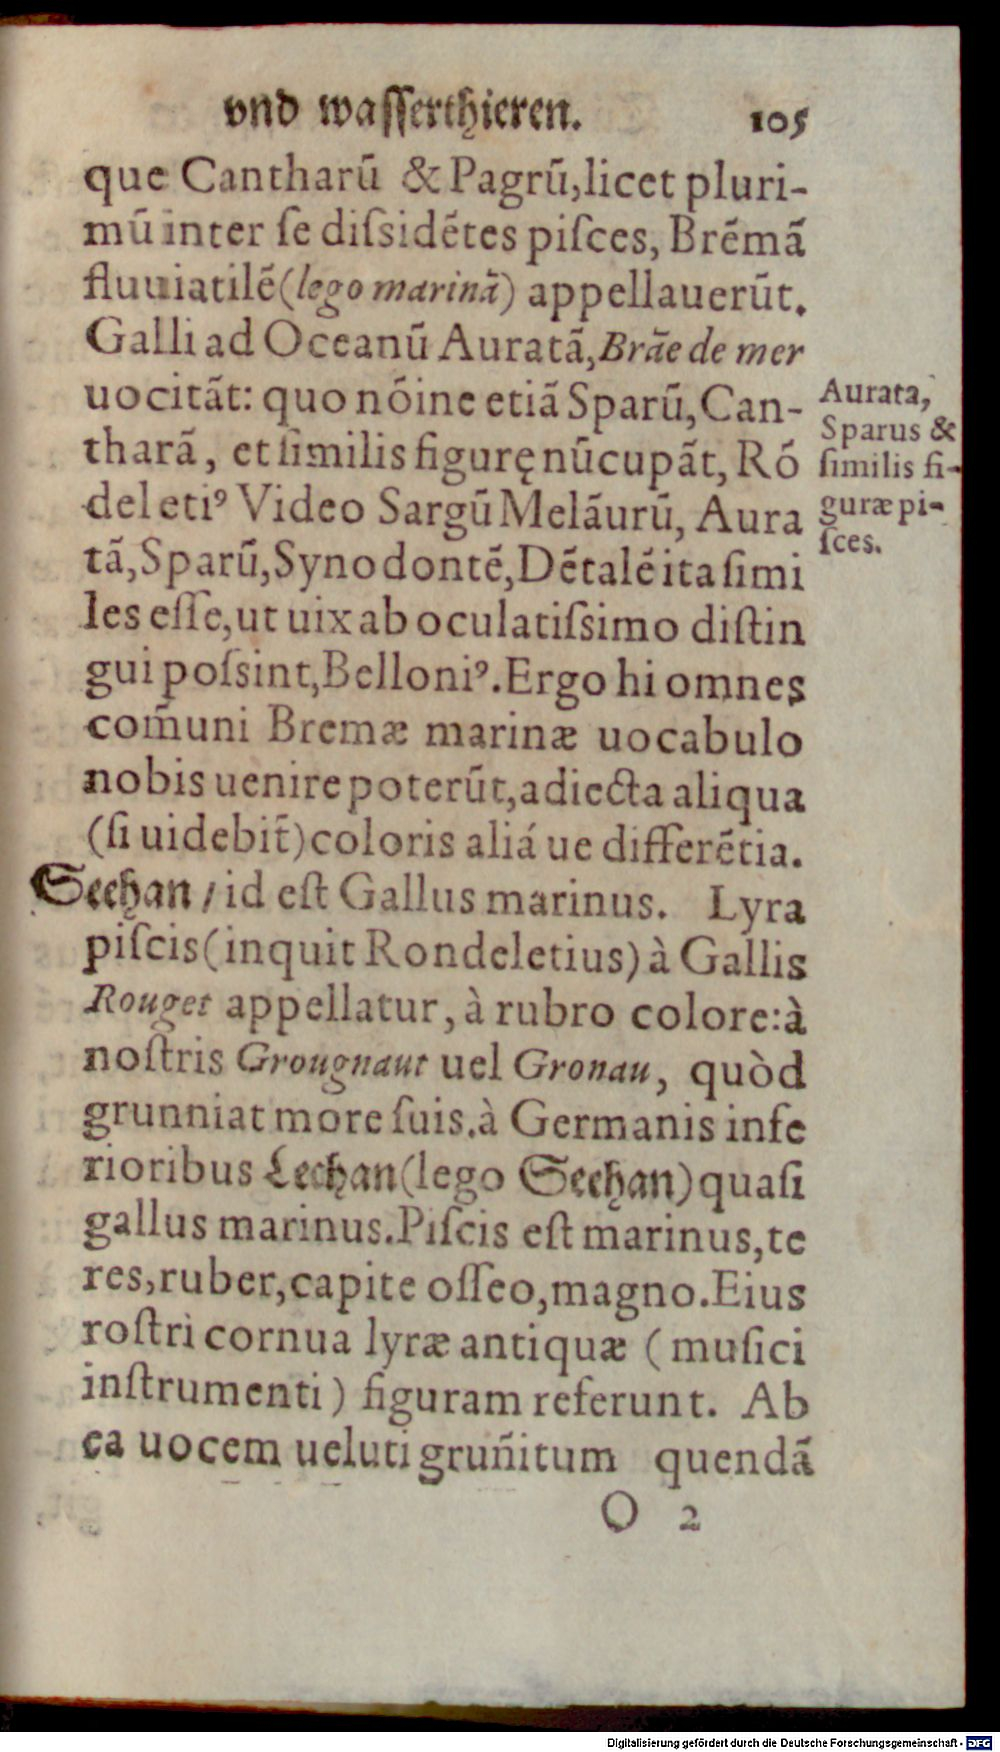 vnd wasserthieren. 105
que Cantharũ & Pagrũ,licet pluri-
mũ inter ſe diſsidẽtes piſces, Brẽmã
fluuiatilẽ(lego marinã) appellauerũt.
Galli ad Oceanũ Auratã,Brãe de mer
uocitãt: quo nõine etiã Sparũ,Can-
tharã, et ſimilis figurę nũcupãt, Rõ
deletiꝰ Video Sargũ Melãurũ, Aura
tã,Sparũ,Synodontẽ,Dẽtalẽ ita ſimi
les eſſe,ut uix ab oculatiſsimo diſtin
gui poſsint,Belloniꝰ.Ergo hi omnes
com̃uni Bremæ marinæ uocabulo
nobis uenire poterũt,adiecta aliqua
(ſi uidebit̃)coloris aliá ue differẽtia.
Seehan / id eſt Gallus marinus. Lyra
piſcis(inquit Rondeletius) à Gallis
Rouget appellatur, à rubro colore:à
noſtris Grougnaut uel Gronau, quòd
grunniat more ſuis.à Germanis infe
rioribus Lechan(lego Seehan)quaſi
gallus marinus.Piſcis eſt marinus,te
res,ruber,capite oſſeo,magno.Eius
roſtri cornua lyræ antiquæ ( muſici
inſtrumenti ) figuram referunt. Ab
ea uocem ueluti gruñitum quendã
O 2
Aurata,
Sparus &
ſimilis fi-
guræ pi-
ſces.
Digitalisierung gefördert durch die Deutsche Forschungsgemeinschaft - DFG